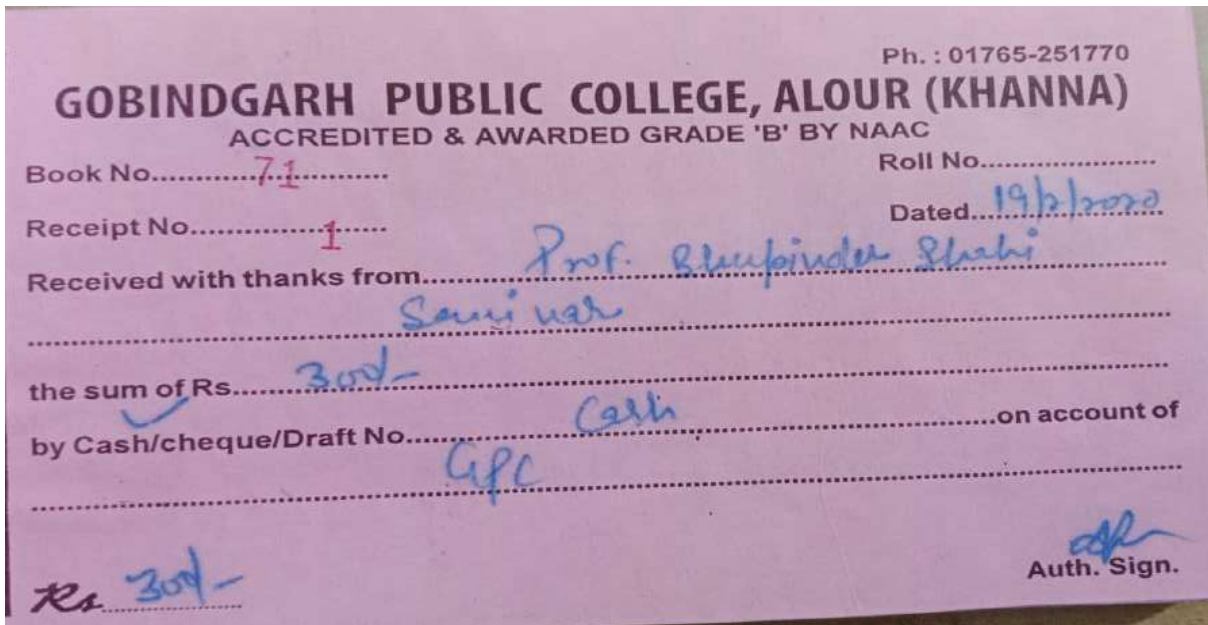 Ph. : 01765-251770
GOBINDGARH PUBLIC COLLEGE, ALOUR (KHANNA)
ACCREDITED & AWARDED GRADE 'B' BY NAAC
Book No.............71............. Roll No......................
Receipt No.................1...... Dated....19/2/2020
Received with thanks from........Prof. Bhupinder Shahi
Seminar
the sum of Rs.........300/-
by Cash/cheque/Draft No........Cash........on account of
GPC
Rs 300/- Auth. Sign.